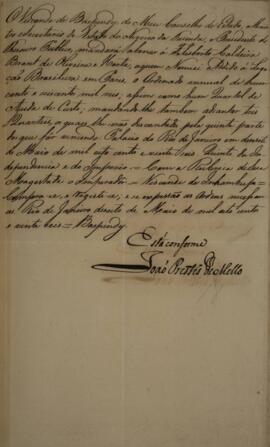 O Visconde de Baependy, do Meu Conselho de Estado, Minis
tro e Secretario de Estado dos Negocios da Fazenda, e Presidente do
Thesouro Publico, mandará abonar a Felisberto Caldeira
Brant de Oliveira e Horta, a quem Nomeei Addido á Lega
ção Brasileira em Pariz, o Ordenado annual de hum
conto e oitenta mil reis, assim como hum Quartel de
Ajuda de Custo, mandando-lhe tambem adiantar tres
Quarteis, o qual lhe será descontado pela quinta parte
do que for vencendo. Palacio do Rio de Janeiro em deseseis
de Maio de mil oito centos e vinte seis, Quinto da In
dependencia e do Imperio = Com a Rubrica de Sua
Magestade o Imperador = Visconde de Inhambupe =
Cumpra-se, e registe-se, e se expeção as Ordens necessa
rias. Rio de Janeiro de Maio de mil oito centos
e vinte seis = Baependy
Está conforme
João Prestes de Mello